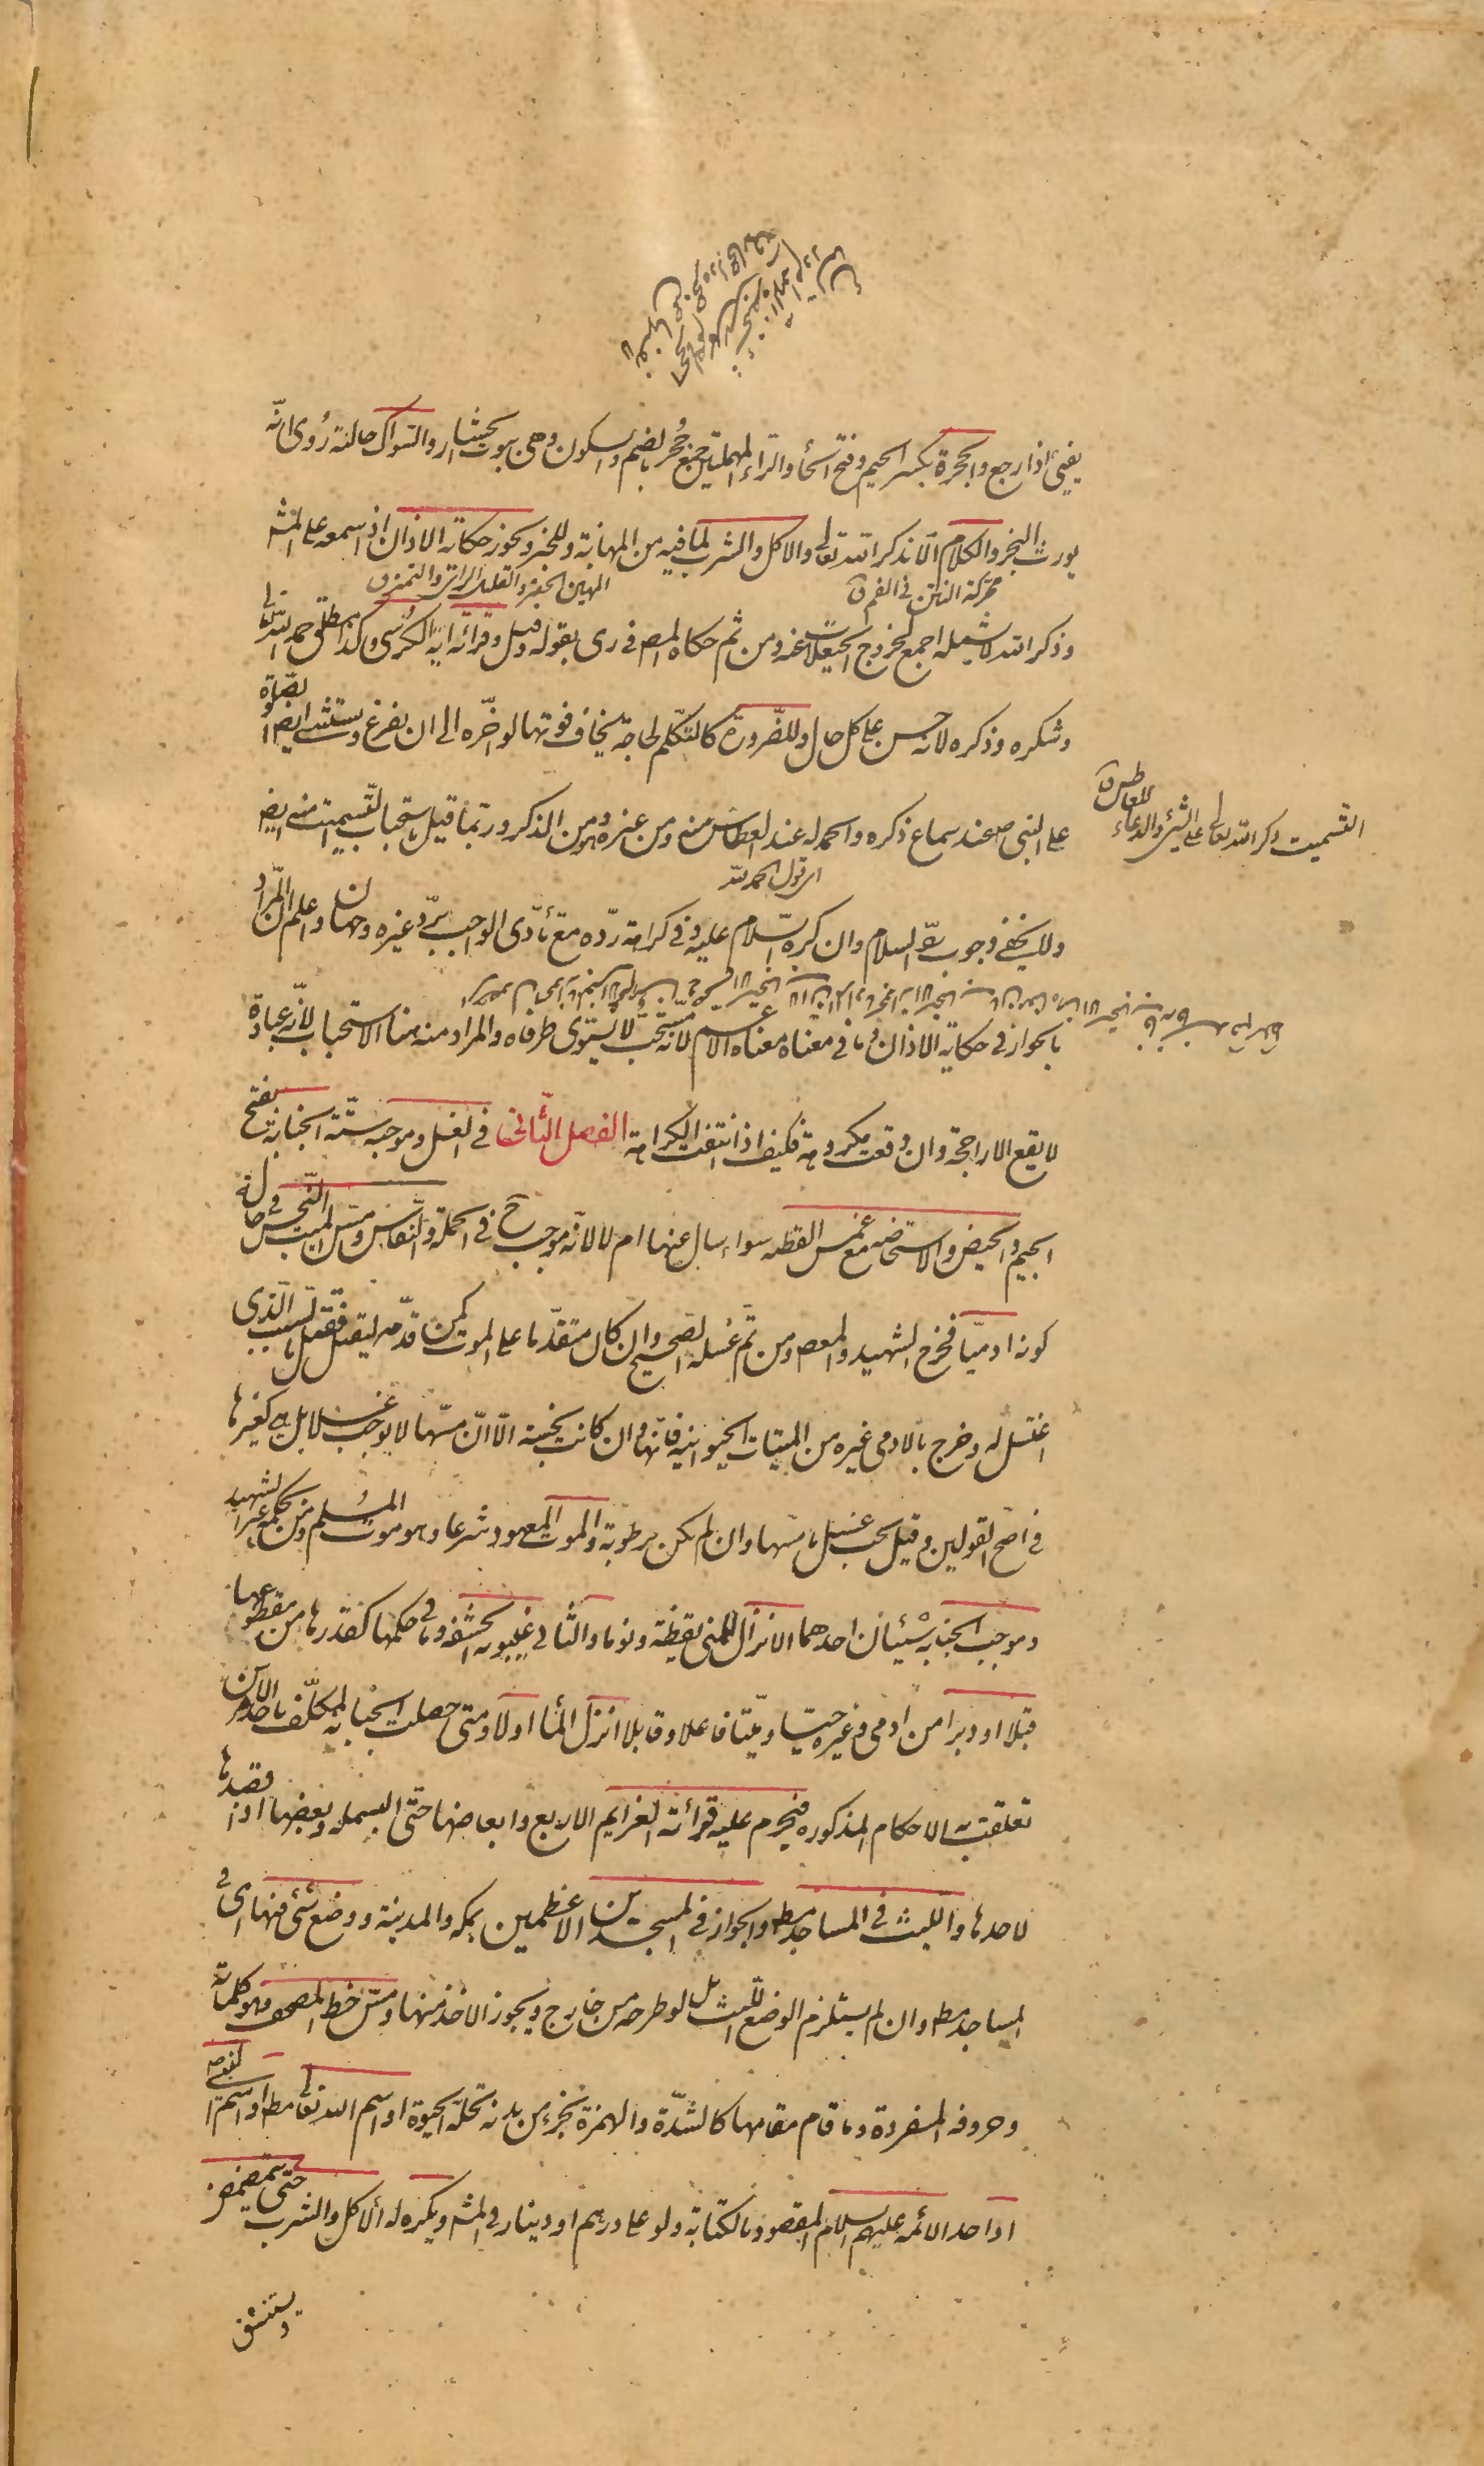 يفيئ اذا رجع والجحرة بكسر الجيم وفتح الحاء والراء المهملتين جمع جُحر بالضم والسكون وهى بيوت الحشار والسواك حالته رُوى انّه
يورث البخر والكلام الّا بذكر الله تعالى والاكل والشرب لما فيه من المهانة وللخبر ويجوز حكاية الاذان اذا سمعه على المشه
محركة النتن في الفم ق
المهين الحقير والقليل الراى والتميز ق
وذكر الله لا يشمله اجمع لخروج الحيعلات عنه ومن ثم حكاه المصـ في رى بقوله وقيل وقرائة اية الكرسى وكذا مطلق حمد الله تعالى
وشكره وذكره لانه حسن على كل حال وللضّرورة كالتكلم لحاجة يخاف فوتها لو اخّره الى ان يفرغ ويستثنى ايضا الصّلوة
على النبى ص عند سماع ذكره والحمدله عند العطاس منه ومن غيره وهو من الذكر وربّما قيل باستحباب التسميت منه ايضا
التسميت ذكر الله تعالى على الشئ والدعاء للعاطس ق
اى قول الحمد لله
ولا يخفى وجوب ردّ السلام وان كره السّلام عليه وفى كراهة ردّه مع تأدّى الواجب بردّ غيره وجهان واعلم ان المراد
بالجواز في حكاية الاذان وما في معناه معناه الاعم لانّه مستحبّ لا يستوى طرفاه والمراد منه هنا الاستحباب لانّه عبادة
لا يقع الا راجحة وان وقعت مكروهة فكيف اذا انتفت الكراهة الفصل الثّانى في الغسل وموجبه ستّة الجنابة بفتح
الجيم والحيض والاستحاضه مع غمس القطنه سواء سال عنها ام لا لانّه موجب ح في الجملة والنفاس ومسّ الميت النّجس في حال
كونه ادميّا فخرج الشهيد والمعصوم ومن تمّ غسله الصّحيح وان كان متقدّما على الموت كمن قدّمه ليقتل فقتل بالسّبب الّذى
اغتسل له وخرج بالادمى غيره من الميتات الحيوانية فانّها وان كانت نجسة الّا انّ مسّها لا يوجب غسلا بل هى كغيرها
في اصح القولين وقيل يجب غسل ما مسّها وان لم يكن برطوبة والموت المعهود شرعا وهو موت المُسلم ومن بحكمه غير الشهيد
وموجب الجنابة شيئان احدهما الانزال للمنى يقظة ونوما والثانى غيبوبة الحشفة وما في حكمها كقدرها من مقطوعها
قبلا او دبرا من ادمى وغيره حيّا وميّتا فاعلا وقابلا انزل الماء اولا ومتى حصلت الجنابة للمكلّف باحد الامرين
تعلقت به الاحكام المذكوره فيحرم عليه قرائة العزايم الاربع وابعاضها حتى البسملة وبعضها اذا قصدها
لاحدها واللبث في المساجد مطـ والجواز في المسجدين الاعظمين بمكه والمدينة ووضع شئ فيها اى في
المساجد مطـ وان لم يستلزم الوضع اللبث بل لو طرحه من خارج ويجوز الاخذ منها ومسّ خط المصحف وهو كلماته
وحروفه المفردة وما قام مقامها كالشدّة والهمزة بجزء من بدنه تحلّه الحيوة او اسم الله تعالى مطـ او اسم النبى ص
او احد الائمه عليهم السلام المقصود بالكتابة ولو على درهم او دينار في المشه ويكره له الاكل والشرب حتى يتمضمض
ويستنشق